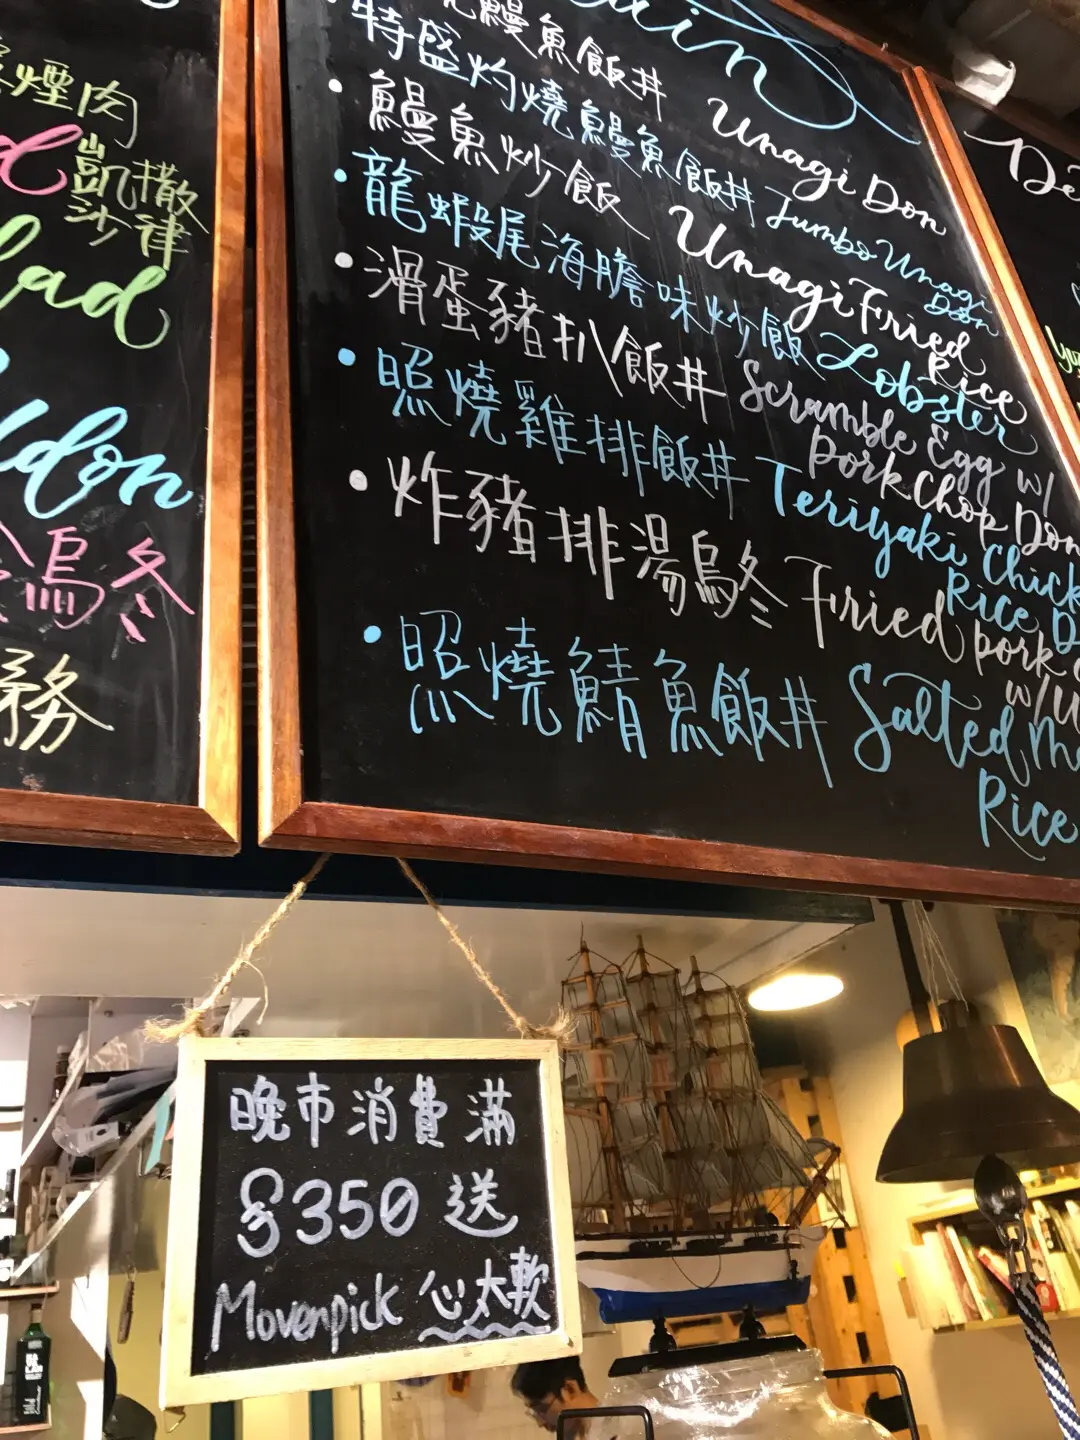 煙肉
凱撒
沙律
lad
ldon
烏冬
務
鰻魚飯丼 Unagi Don
特盛灼燒鰻魚飯丼 Jumbo Unagi
Don
鰻魚炒飯 Unagi Fried
Rice
龍蝦尾海膽味炒飯 Lobster
滑蛋豬扒飯丼 Scramble Egg w/
Pork Chop Don
照燒雞排飯丼 Teriyaki Chick
Rice D
炸豬排湯烏冬 Fried pork
w/U
照燒鯖魚飯丼 Salted Ma
Rice
De
晚市消費滿
$350 送
Movenpick 心太軟